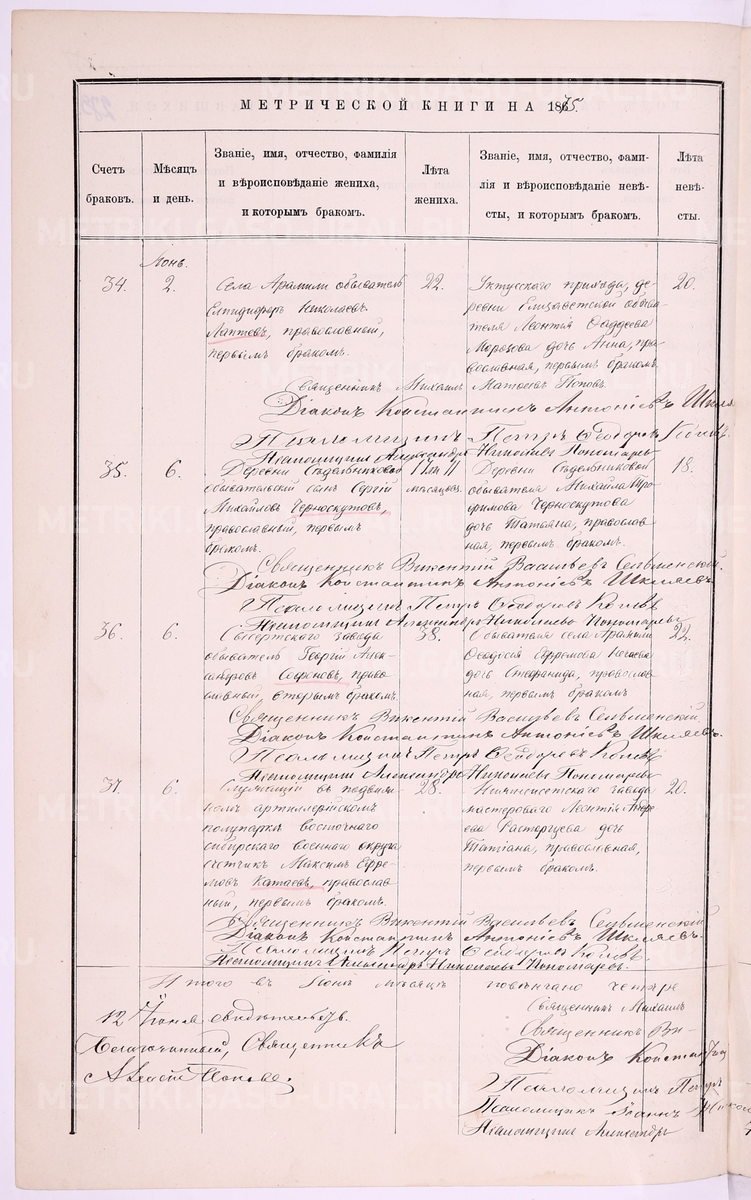 МЕТРИЧЕСКОЙ КНИГИ НА 1875.
Счетъ браковъ.
Мѣсяцъ и день.
Званіе, имя, отчество, фамилія
и вѣроисповѣданіе жениха,
и которымъ бракомъ.
Лѣта жениха.
Званіе, имя, отчество, фами-
лія и вѣроисповѣданіе невѣ-
сты, и которымъ бракомъ.
Лѣта невѣ-
сты.
Іюнь.
34. 2.
Села Арамили обыватель
Елпидифоръ Николаевъ
Лаптевъ, православный,
первымъ бракомъ.
22.
Уктусского прихода, де-
ревни Елизаветской обыва-
теля Леонтія Фаддеева
Морозова дочь Анна, пра-
вославная, первымъ бракомъ.
20.
Священникъ Михаилъ Матвѣевъ Поповъ.
Діаконъ Константинъ Антоніевъ Шкля
Псаломщикъ Петръ Ѳеодоровъ
Псаломщикъ Александръ Николаевъ Пономаревъ
35. 6.
Деревни Сѣдельниковой
обывательскій сынъ Сергій
Михайловъ Черноскутовъ,
православный, первымъ
бракомъ.
мѣсяцовъ.
Деревни Сѣдельниковой
обывателя Михаила Тро-
фимова Черноскутова
дочь Татьяна, православ-
ная, первымъ бракомъ.
18.
Священникъ Викентій Васильевъ Селвменскій
Діаконъ Константинъ Антоніевъ Шкляевъ
Псаломщикъ Петръ Ѳеодоровъ
Псаломщикъ Александръ Николаевъ Пономаревъ
36. 6.
Сысертского завода
обыватель Георгій Алек-
сандровъ Сафоновъ, право-
славный, вторымъ бракомъ.
38.
Обывателя села Арамили
Ѳеодосія Ефремова
дочь Стефанида, православ-
ная, первымъ бракомъ
22.
Священникъ Викентій Васильевъ Селвменскій
Діаконъ Константинъ Антоніевъ Шкляевъ.
Псаломщикъ Петръ Ѳеодоровъ
Псаломщикъ Александръ Николаевъ Пономаревъ
37. 6.
Служащій въ подвиж-
номъ артиллерійскомъ
полупаркѣ восточного
сибирскаго военнаго округа
Максимъ Ефре-
мовъ Катаевъ, православ-
ный, первымъ бракомъ.
28.
Нижнеисетского завода
мастероваго Леонтія Андре-
ева Расторгуева дочь
Татіана, православная,
первымъ бракомъ.
20.
Священникъ Викентій Васильевъ Селвменскій
Діаконъ Константинъ Антоніевъ Шкляевъ.
Псаломщикъ Петръ Ѳеодоровъ
Псаломщикъ Александръ Николаевъ Пономаревъ.
Итого въ Іюнѣ мѣсяцѣ повѣнчано четыре
Священникъ Михаилъ
Священникъ Ви-
Діаконъ Констан
Псаломщикъ Петръ
Псаломщикъ Іоаннъ
Псаломщикъ Александръ
12 Іюня свидѣтельств.
Благочинный, Священникъ
Поповъ.
METRIKI.GASO-URAL.RU